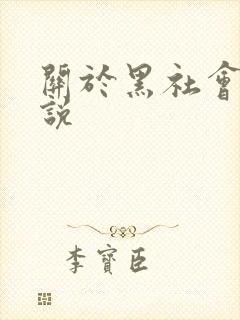 關於黑社會
説
李寶臣